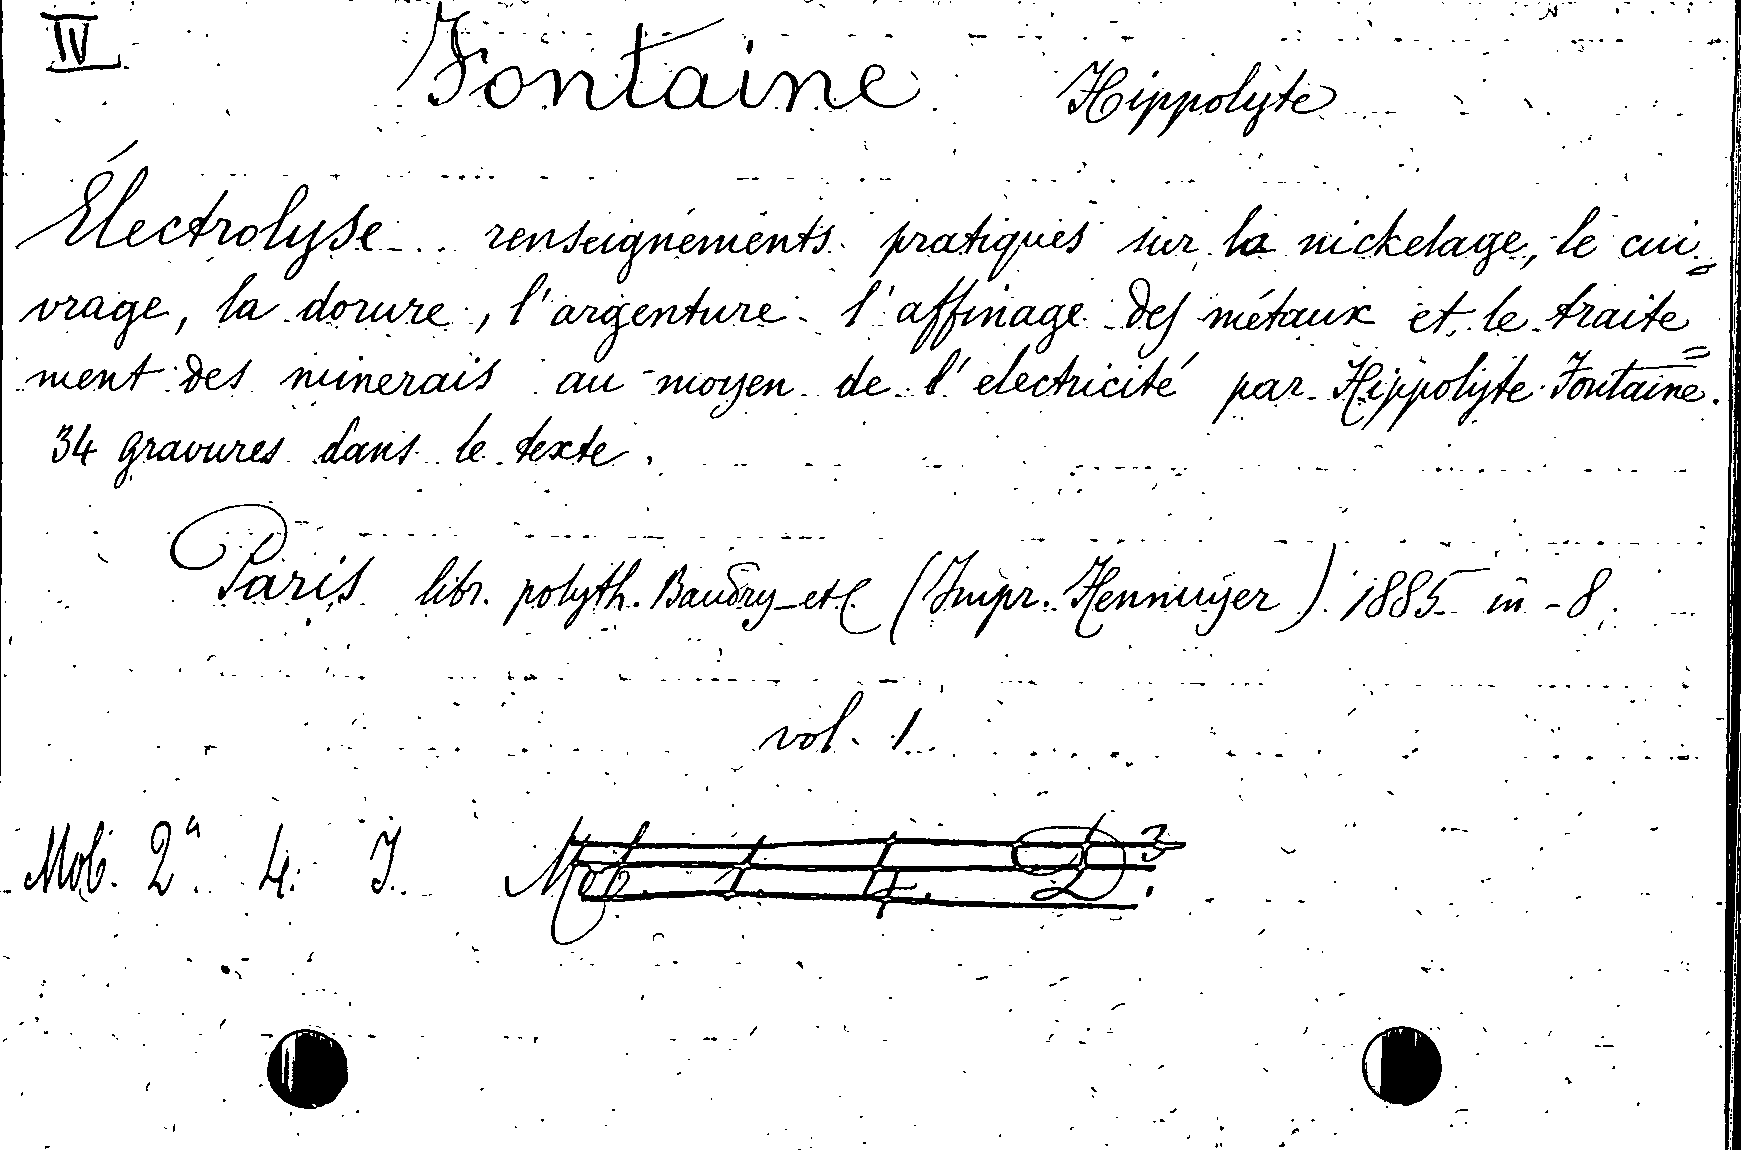 IV
Fontaine Hippolyte
Électrolyse renseignements pratiques sur la nickelage, le cui=
vrage, la dorure, l'argenture l'affinage des métaux et le traite=
ment des minerais au moyen de l'electricité par Hippolyte Fontaine.
34 gravures dans le texte.
Paris libr. polyth. Baudry et C. (Impr. Hennuyer) 1885 in-8.
vol. 1
Mob. 2a 4. I. Mob. 1. 4. D3.